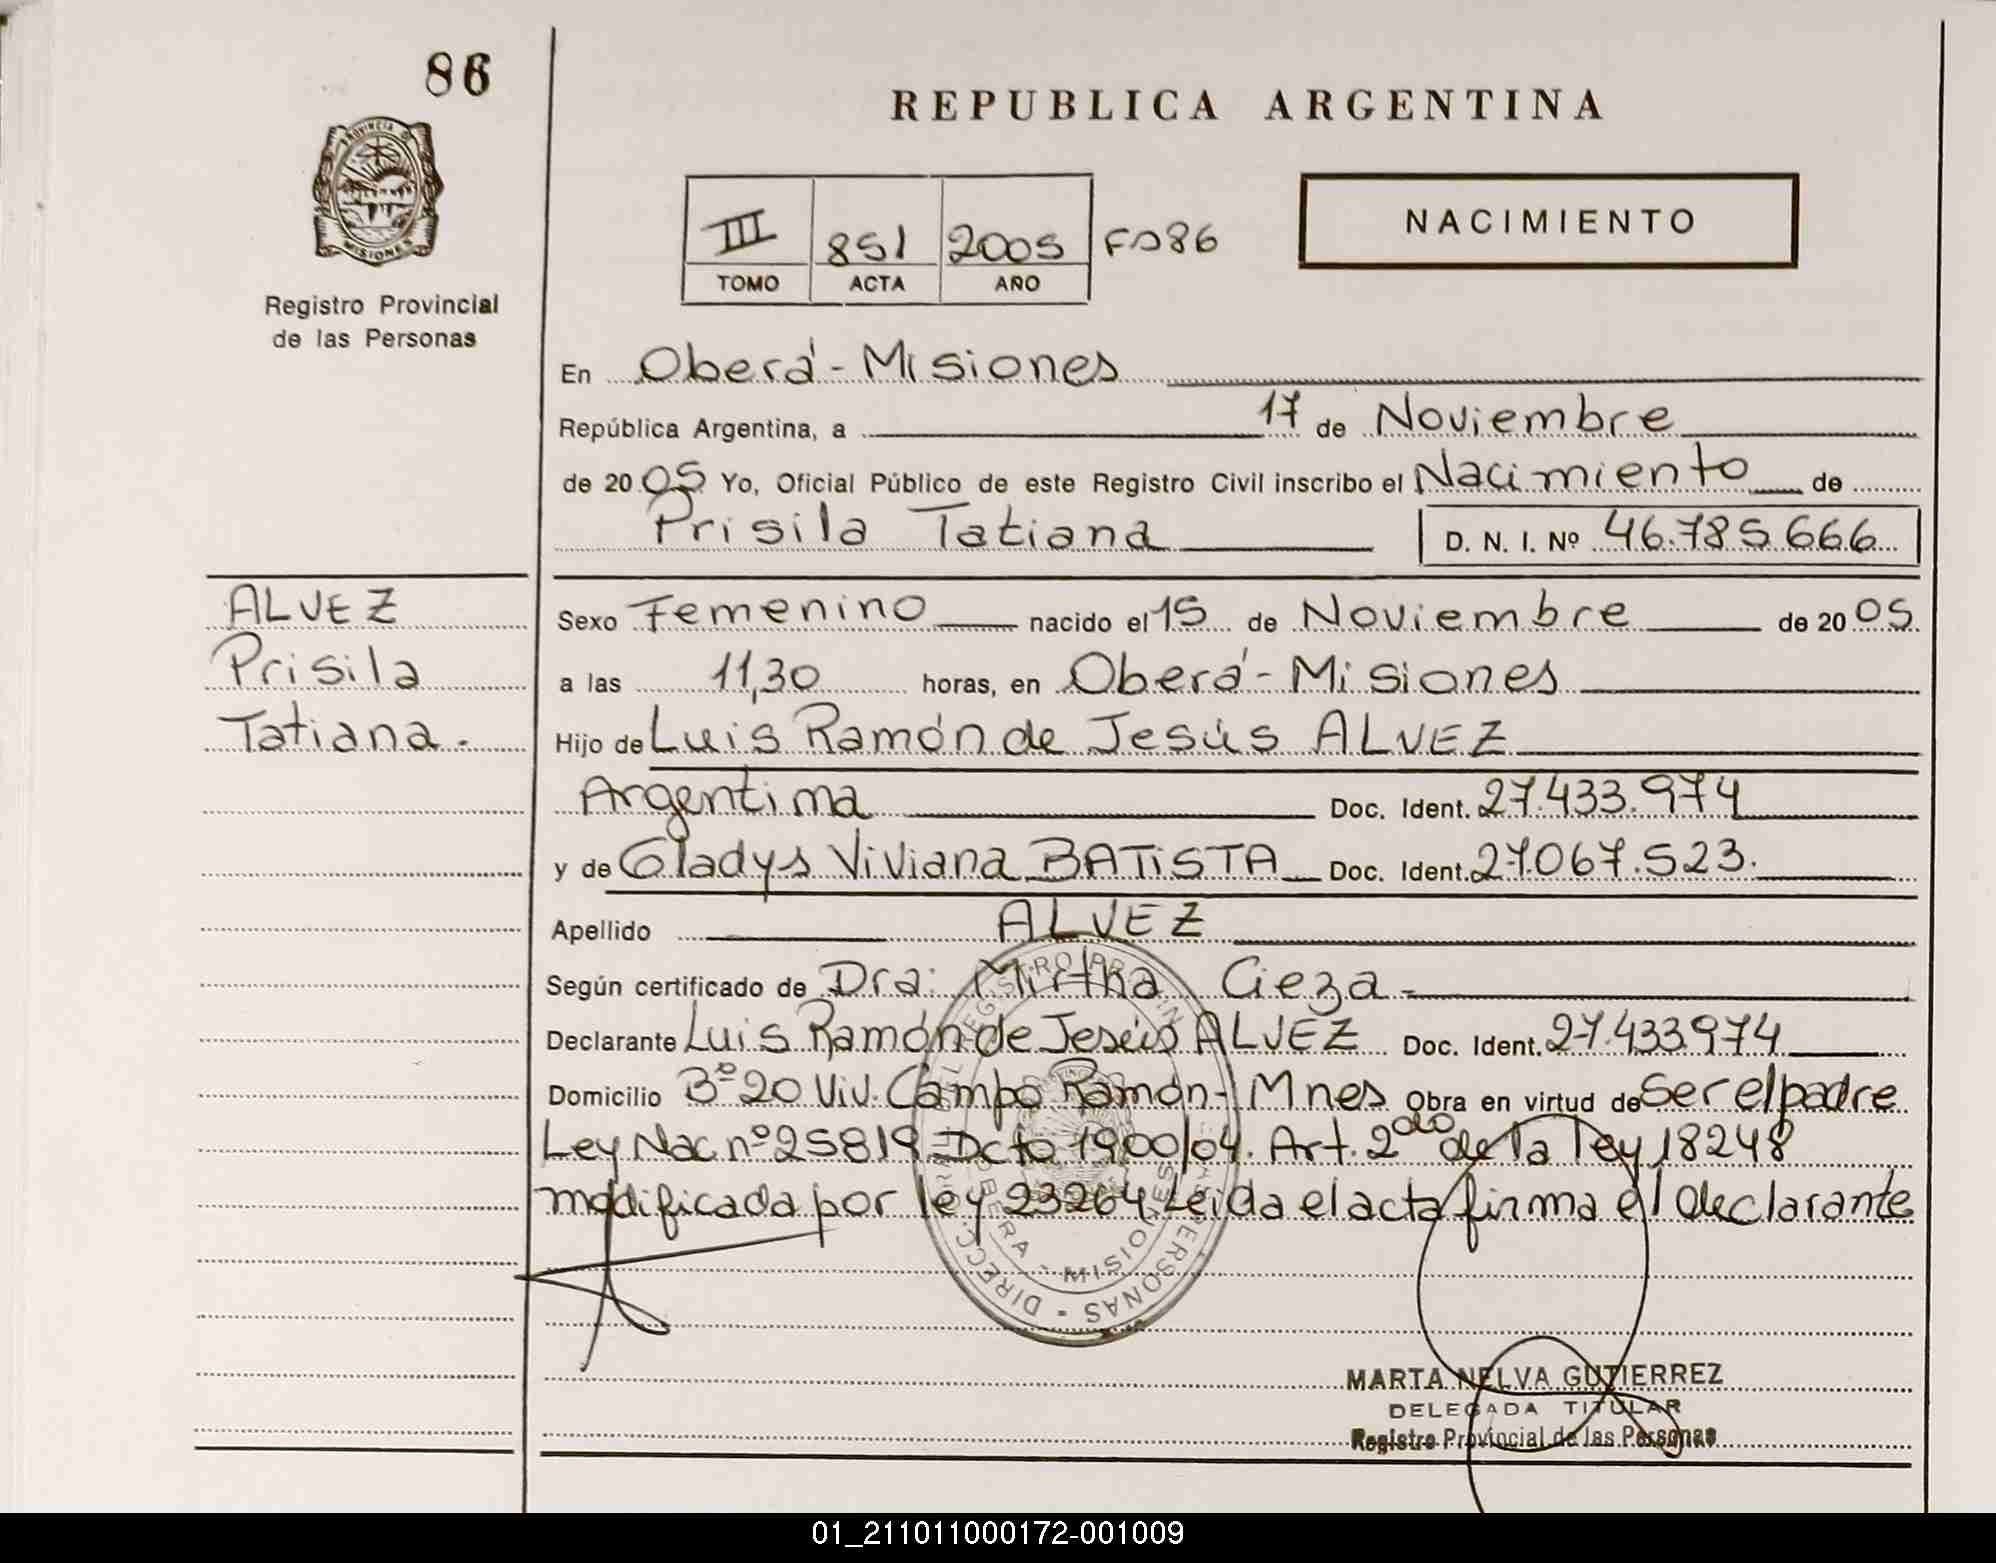 86
REPUBLICA ARGENTINA
PROVINCIA D
MISIONES
Registro Provincial
de las Personas
III 851 2005 Fº86
TOMO ACTA AÑO
NACIMIENTO
En Oberá - Misiones
República Argentina, a 17 de Noviembre
de 2005 Yo, Oficial Público de este Registro Civil inscribo el Nacimiento de
Prisila Tatiana D. N. I. Nº 46.785.666
ALVEZ
Prisila
Tatiana.
Sexo Femenino nacido el 15 de Noviembre de 2005
a las 11,30 horas, en Oberá - Misiones
Hijo de Luis Ramón de Jesús ALVEZ
Argentina Doc. Ident. 27.433.974
y de Gladys Viviana BATISTA Doc. Ident. 27.067.523.
Apellido ALVEZ
Según certificado de Dra: Mirtha Cieza -
Declarante Luis Ramón de Jesús ALVEZ Doc. Ident. 27.433.974
Domicilio Bº 20 Viv. Campo Ramón - Mnes Obra en virtud de ser el padre
Ley Nac nº 25819 Dcto 1900/04. Art. 2do de la ley 18248
modificada por ley 23264 Leida el acta firma el declarante
OBERA - MISIONES
MARTA NELVA GUTIERREZ
DELEGADA TITULAR
Registro Provincial de las Personas
01_211011000172-001009